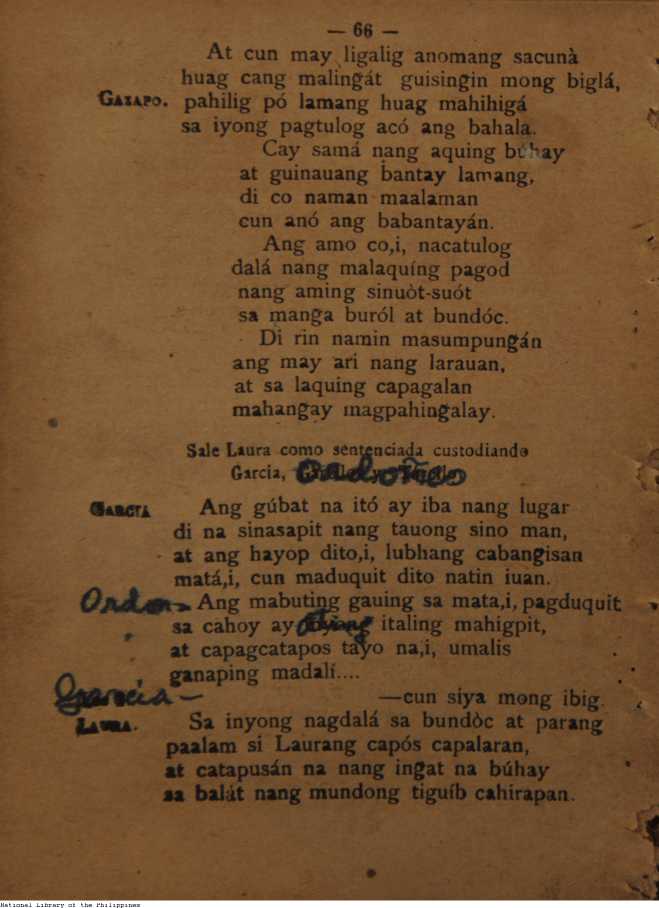 — 66 —
At cun may ligalig anomang sacunà
huag cang maling̃át guisingin mong biglá,
GAZAPO. pahilig pó lamang huag mahihigá
sa iyong pagtulog acó ang bahala.
Cay samá nang aquing búhay
at guinauang bantay lamang,
di co naman maalaman
cun anó ang babantayán.
Ang amo co,i, nacatulog
dalá nang malaquíng pagod
nang aming sinuòt-suót
sa mang̃a buról at bundóc.
Di rin namin masumpung̃án
ang may ari nang larauan,
at sa laquing capagalan
mahang̃ay magpahing̃alay.
Sale Laura como sentenciada custodiando
Garcia, Ordoñes
GARCIA Ang gúbat na itó ay iba nang lugar
di na sinasapit nang tauong sino man,
at ang hayop dito,i, lubhang cabang̃isan
matá,i, cun maduquit dito natin iuan.
Ordoñ— Ang mabuting gauing sa mata,i, pagduquit
sa cahoy ay italing mahigpit,
at capagcatapos tayo na,i, umalis
g̃anaping madalí....
Garcia — —cun siya mong ibig.
LAURA. Sa inyong nagdalá sa bundòc at parang
paalam si Laurang capós capalaran,
at catapusán na nang ing̃at na búhay
sa balát nang mundong tiguíb cahirapan.
National Library of the Philippines